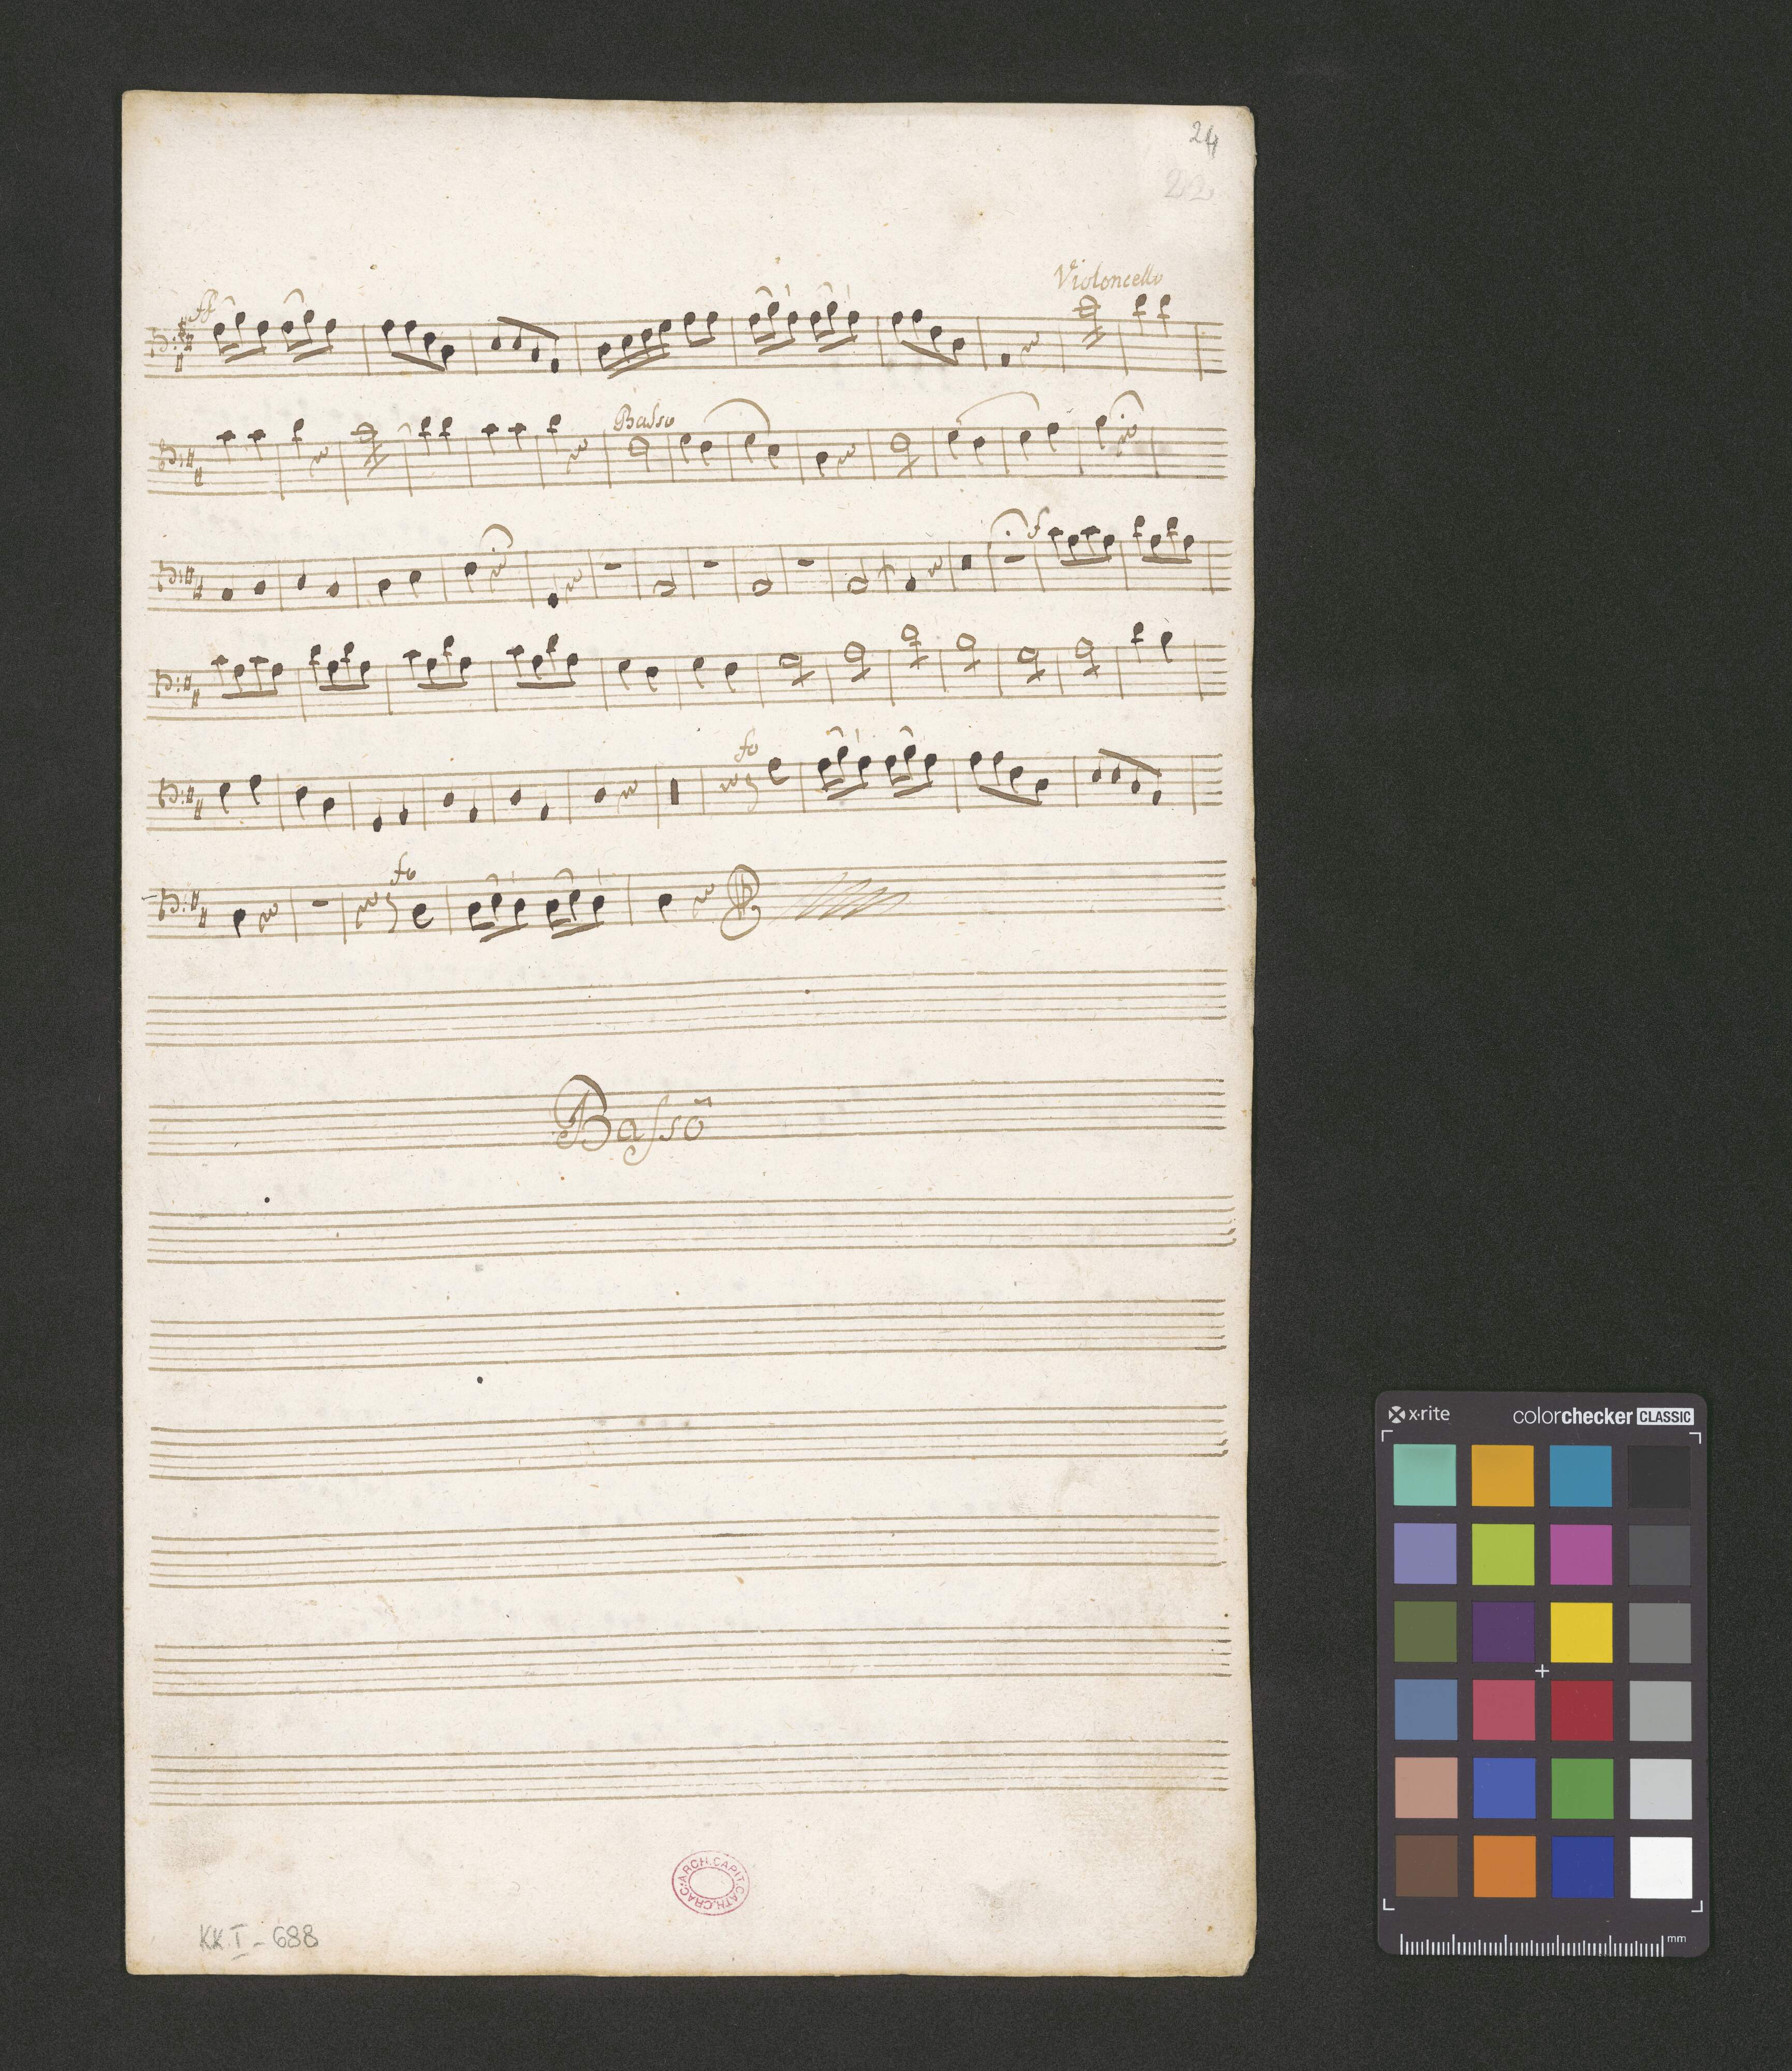 24
22
ff
Violoncello
Basso
f
fo
fo
Basso
ARCH.CAPIT.CATH.CRAC.
KK I - 688
x·rite colorchecker CLASSIC
mm